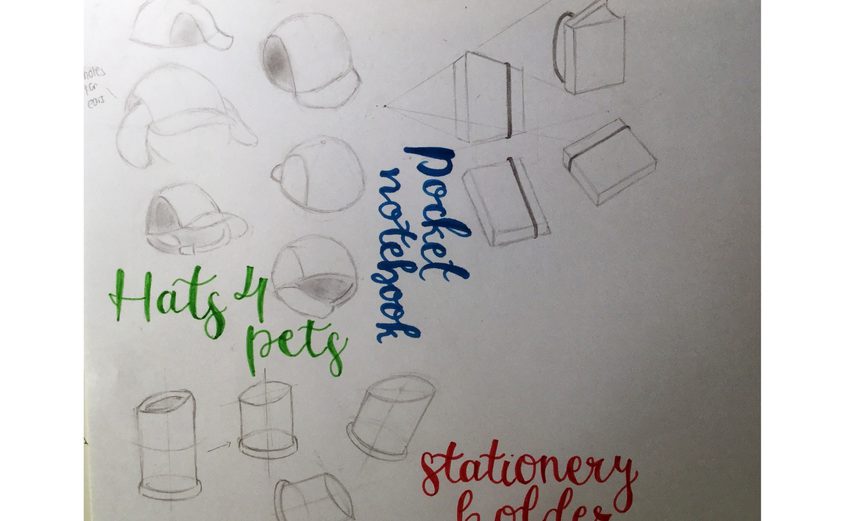 holes
for
ears
Hats 4
pets
pocket
notebook
stationery
holder